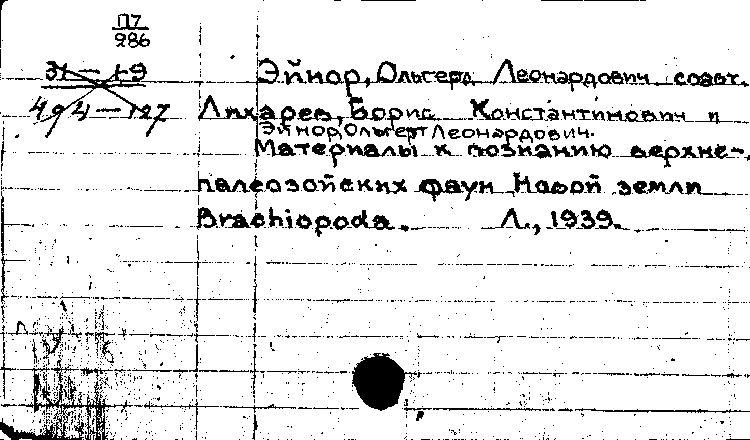 П7
286
31-19
494-127
Эйнор, Ольгерд Леонардович, соавт.
Лихарев, Борис Константинович и
Эйнор, Ольгерт Леонардович.
Материалы к познанию верхне-
палеозойских фаун Новой земли
Brachiopoda. Л., 1939.